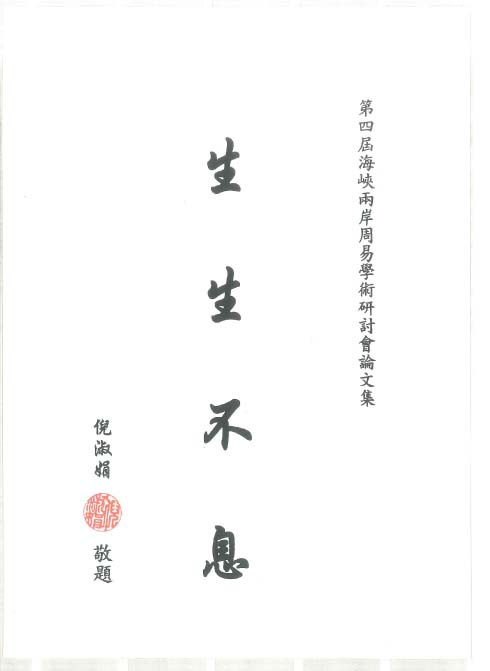 第四屆海峽兩岸周易學術研討會論文集
生生不息
倪淑娟
敬題